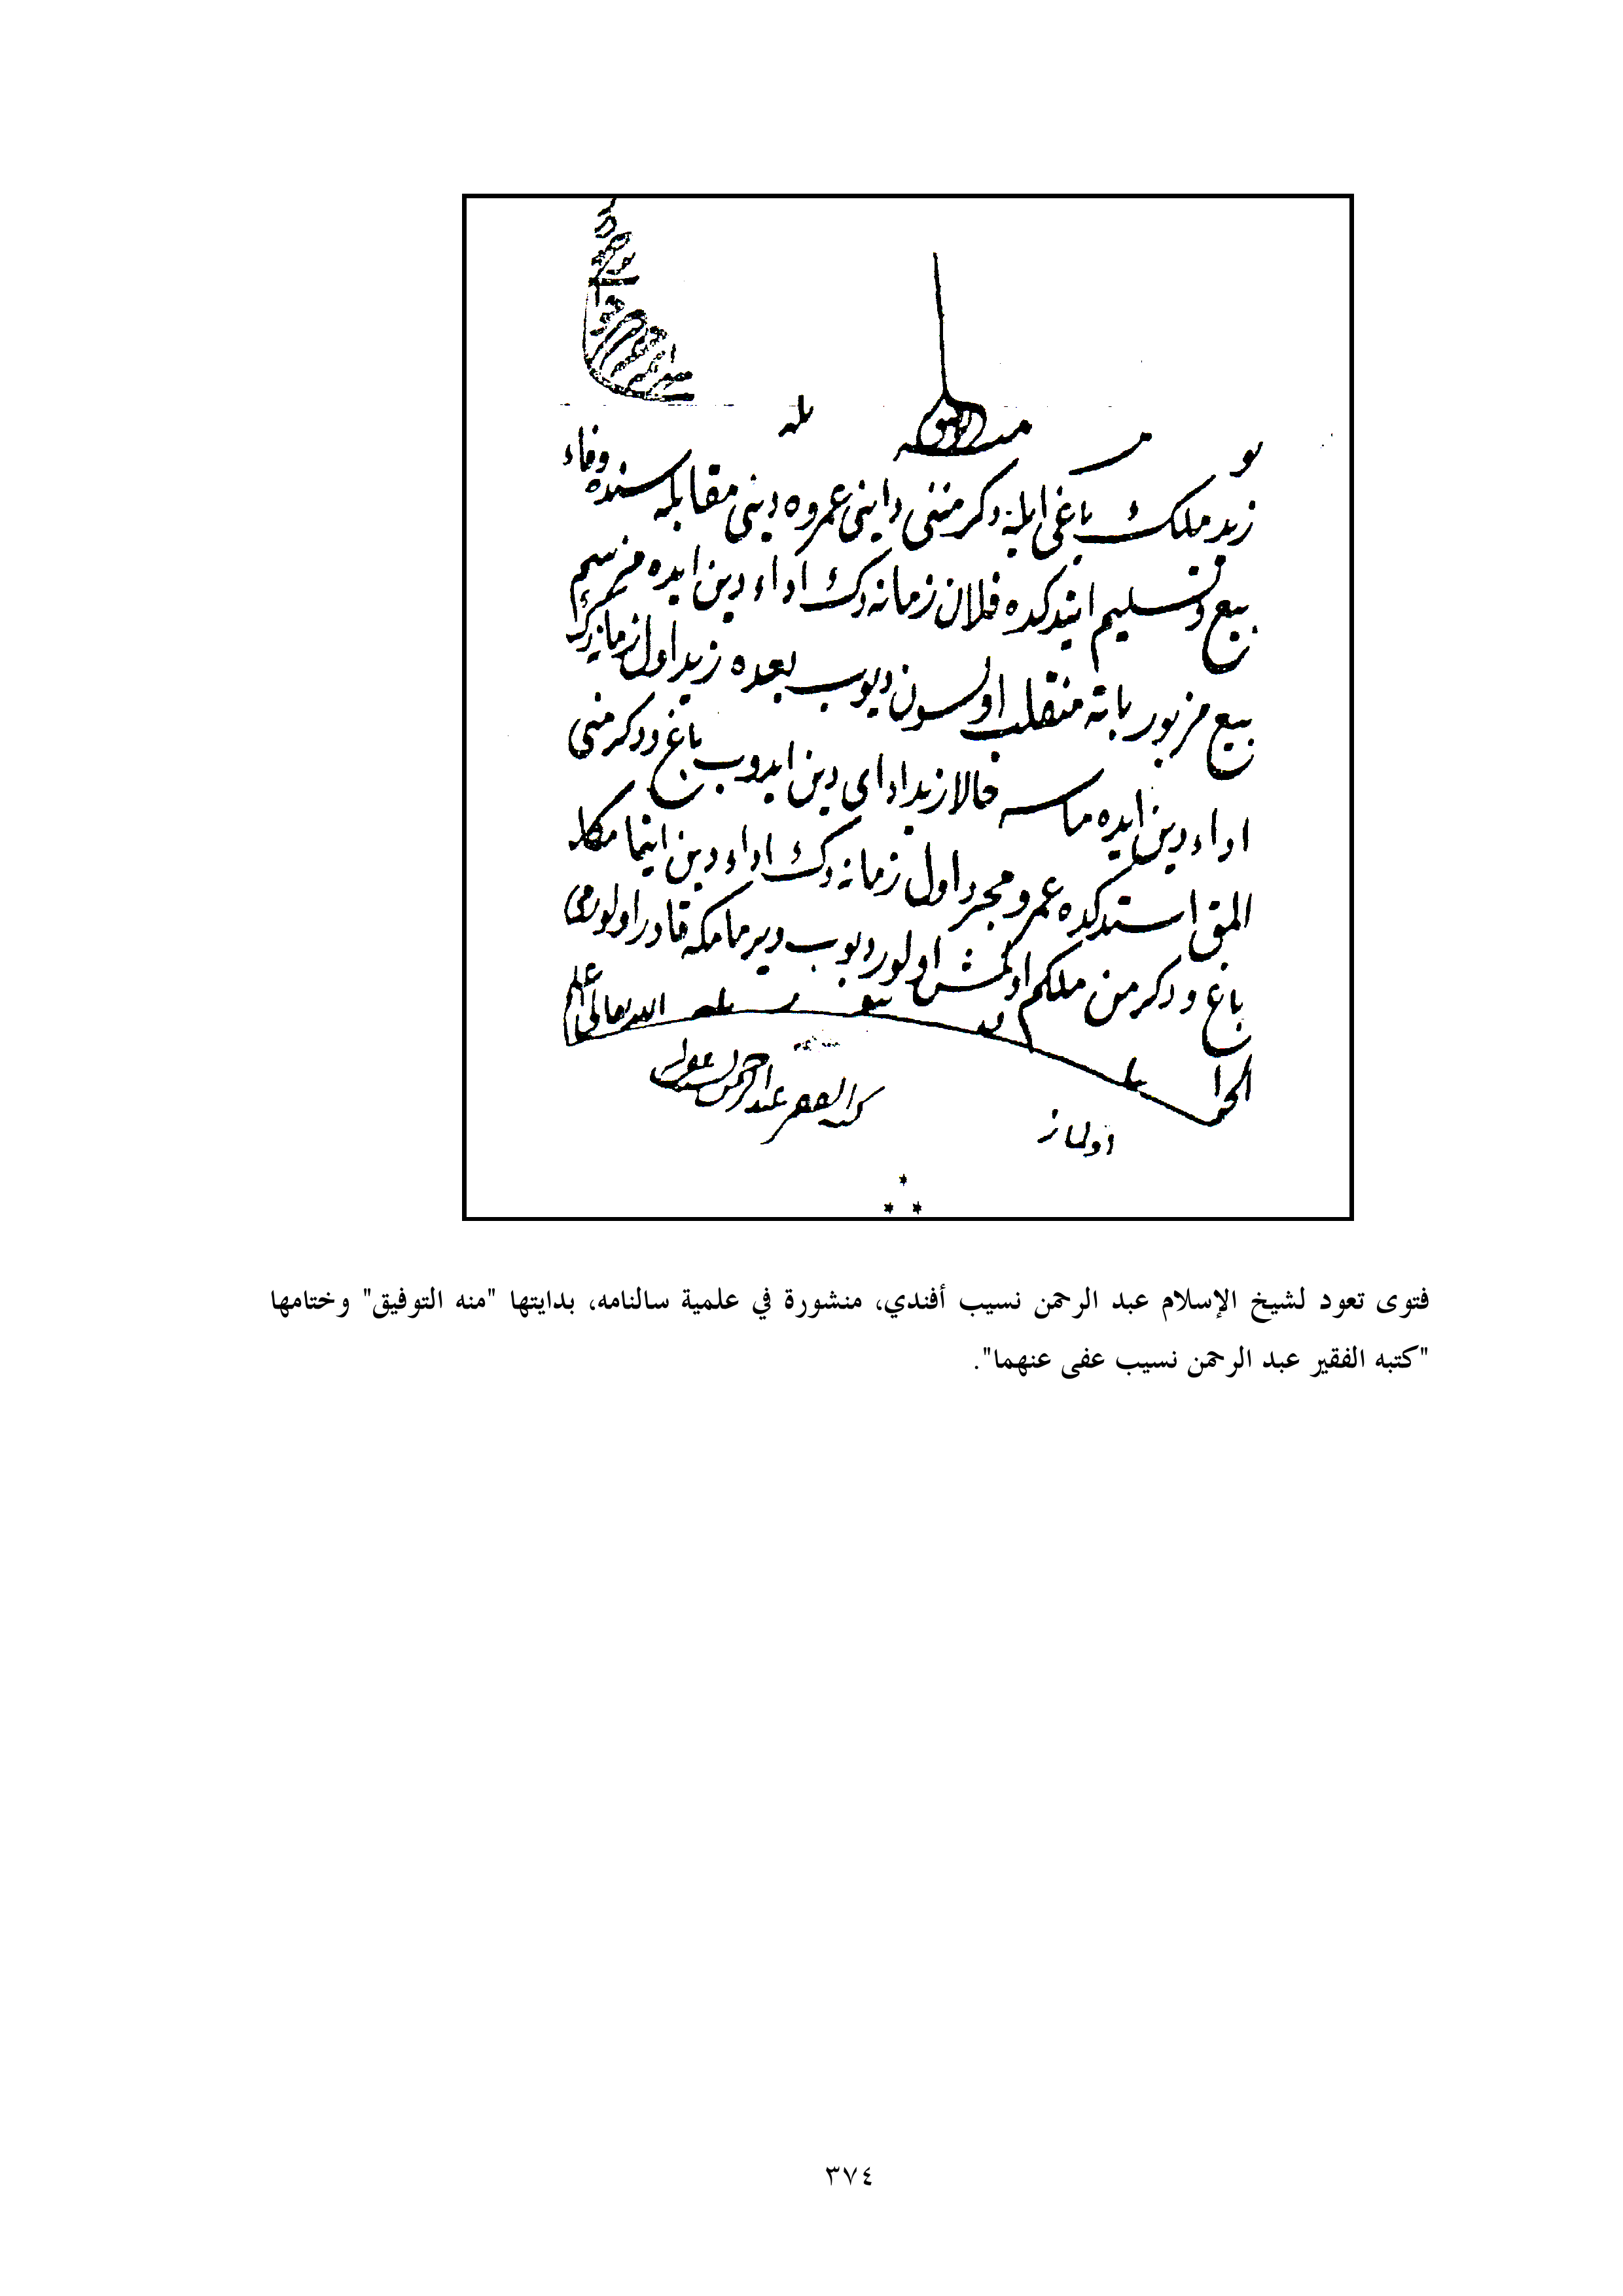 منه التوفيق
بو مسئله
زيد ملك باغی ايله دكرمننی داينی عمروه دينی مقابله سنده وفاء
بيع وتسليم ايتدكده فلان زمانه دك اداء دين ايده مزسم
بيع مزبور باته منقلب اولسون ديوب بعده زيد اول زمانه دك
اداء دين ايده ماسه حالا زيد ادای دين ايدوب باغ ودكرمنی
المق استدكده عمرو مجرد اول زمانه دك اداء دين ايتمامكله
باغ ودكرمن ملكم اولمش اولور ديوب ديرمامكه قادر اولورمی
الجواب الله تعالى اعلم
اولماز
كتبه الفقير عبد الرحمن نسيب عفى
فتوى تعود لشيخ الإسلام عبد الرحمن نسيب أفندي، منشورة في علمية سالنامه، بدايتها "منه التوفيق" وختامها
"كتبه الفقير عبد الرحمن نسيب عفى عنهما".
٣٧٤